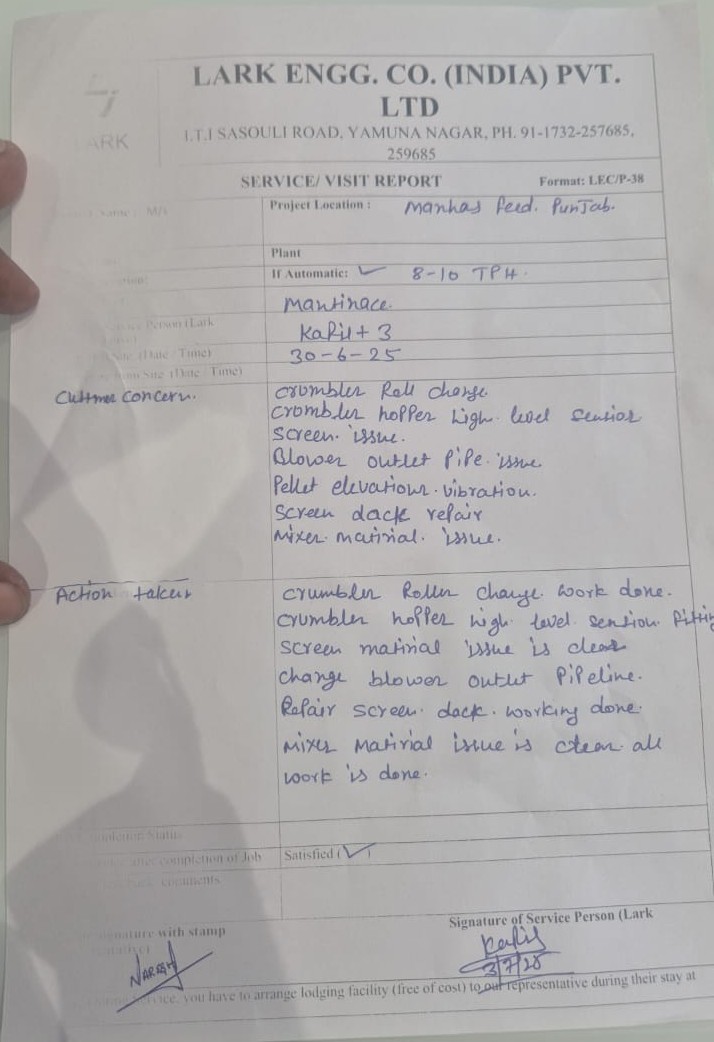 LARK ENGG. CO. (INDIA) PVT.
LTD
LARK
I.T.I SASOULI ROAD, YAMUNA NAGAR, PH. 91-1732-257685,
259685
SERVICE/ VISIT REPORT Format: LEC/P-38
Name : M/s Project Location : Manhas feed. PunJab.
Plant
If Automatic: ✓ 8-10 TPH.
Mantinace
Person (Lark Kapil + 3
Site (Date / Time) 30-6-25
Site (Date / Time)
Crumbler Roll change
Crombler hopper high level
Screen issue.
Blower outlet Pipe issue
Pellet vibration.
Screen dack repair
Mixer matirial issue.
Action Crumbler Roller change work done.
Crumbler hopper high level
Screen matirial issue is clear
change blower outlet Pipeline.
Repair screen dack working done.
Mixer Matirial issue is clean all
work is done.
Status
after completion of Job Satisfied (✓)
comments
Signature with stamp Signature of Service Person (Lark
NARESH Kapil
3/7/25
Service, you have to arrange lodging facility (free of cost) to our representative during their stay at